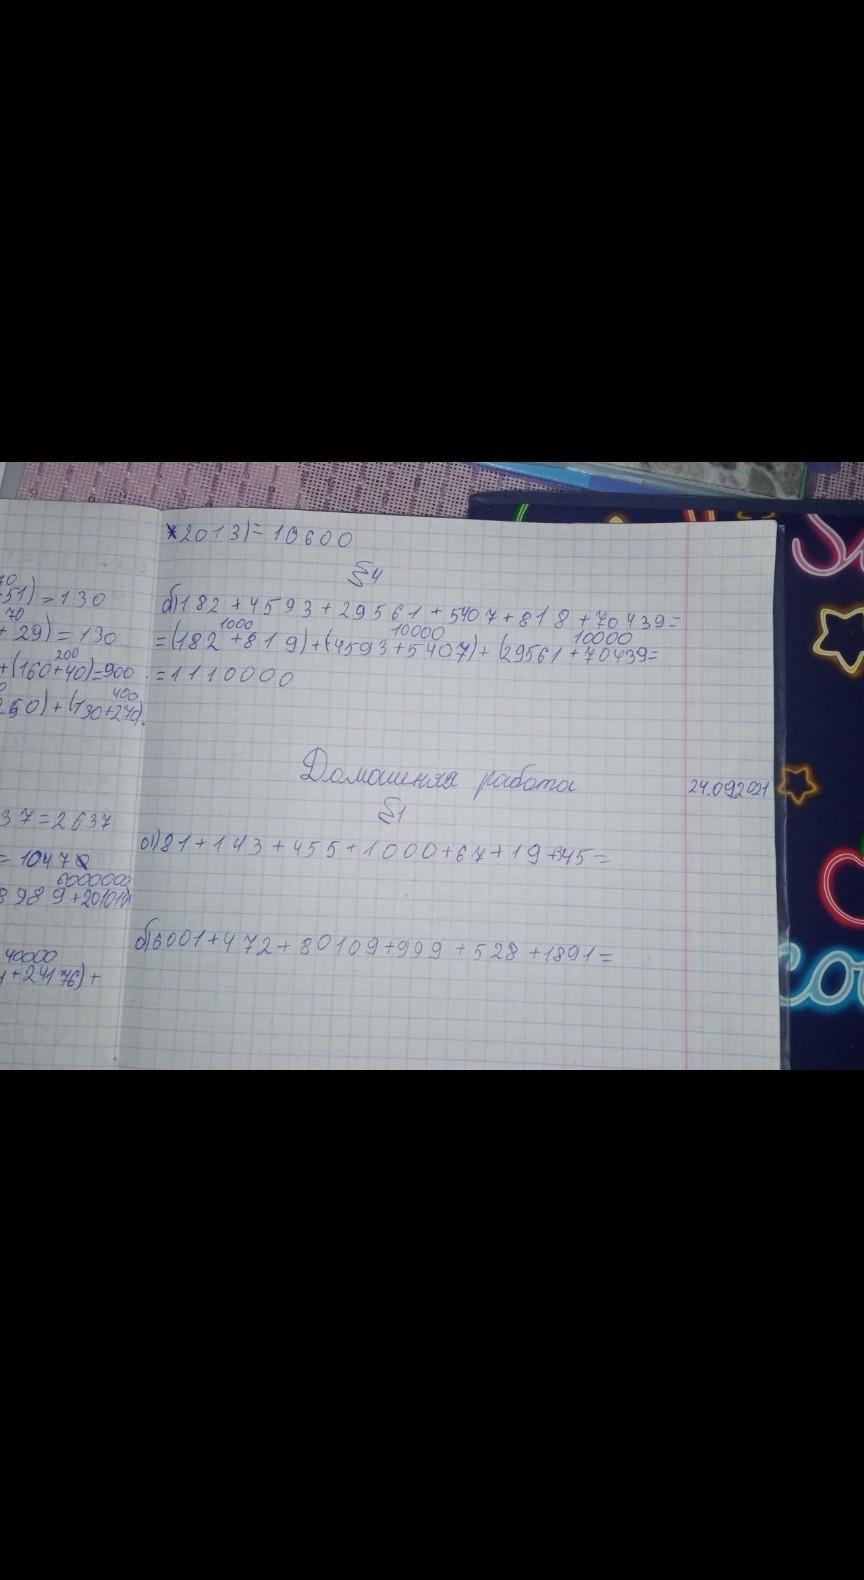 *2013)=10600
§4
б)182+4593+29561+5407+818+70439=
1000 10000 10000
=(182+819)+(4593+5407)+(29561+70439=
=1110000
Домашняя работа
24.092021
§1
а)81+143+455+1000+67+19+45=
б)6001+472+80109+999+528+1891=
70
51)=130
70
+29)=130
200
+(160+40)=900
400
250)+(130+270)
37=2637
=1047
6000000
8989+201011
40000
+24176)+
S
co